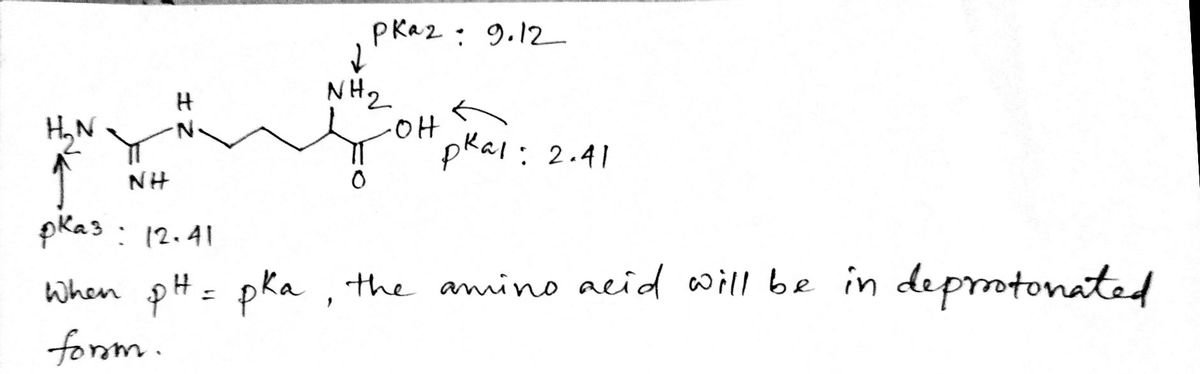 pKa2 : 9.12
NH2
H
H2N
N
OH
pKa1 : 2.41
NH
O
pKa3 : 12.41
When pH = pKa , the amino acid will be in deprotonated
form.